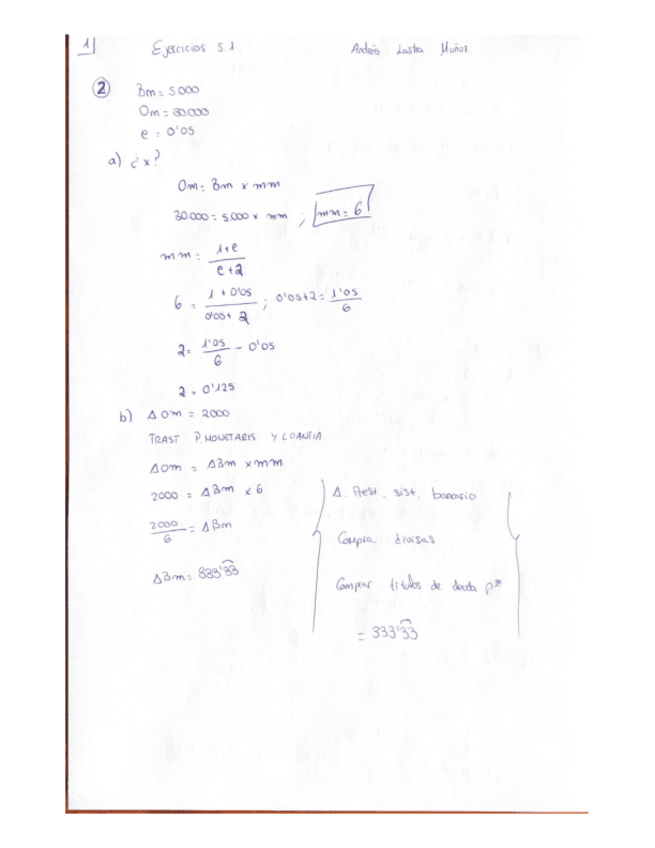 1
Ejercicios 5.1.
Andrés Lastra Muñoz
2
Bm = 5000
Om = 30.000
e = 0'05
a) ¿x?
Om = Bm x mm
30.000 = 5.000 x mm ; mm = 6
mm = 1+e / e+2
6 = 1 + 0'05 / 0'05 + 2 ; 0'05+2 = 1'05 / 6
2 = 1'05 / 6 - 0'05
2 = 0'125
b) Δ Om = 2000
TRAST P. MONETARIS Y CUANTIA
ΔOm = ΔBm x mm
2000 = ΔBm x 6
2000 / 6 = ΔBm
ΔBm = 333'33
Δ. Prest. sist. bancario
Compra divisas
Comprar titulos de deuda pca
= 333'33